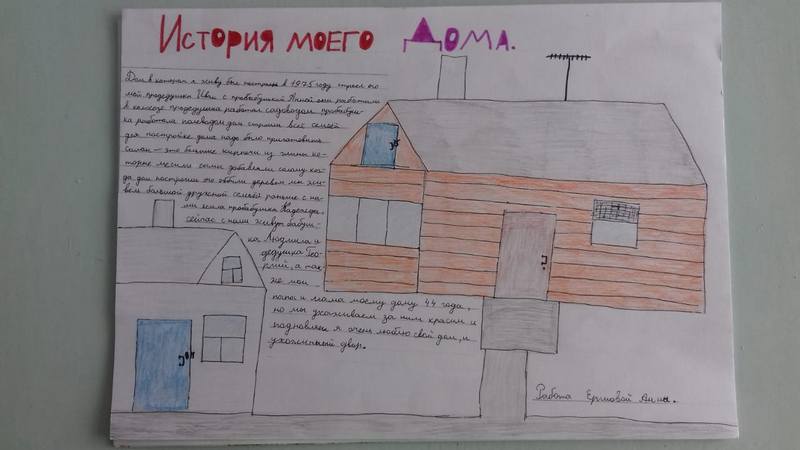 История моего Дома.
Дом в котором я живу был построен в 1975 году строил его
мой прадедушка Иван с прабабушкой Анной они работали
в колхозе прадедушка работал садоводом прабабуш-
ка работала полеводом дом строили всей семьёй
для постройки дома надо было приготовить
саман – это большие кирпичи из глины ко-
торые месили сами добавляли солому ког-
да дом построили его оббили деревом мы жи-
вём большой дружной семьёй раньше с на-
ми жила прабабушка Надежда,
сейчас с нами живут бабуш-
ка Людмила и
дедушка Гео-
ргий, а так-
же мои
папа и мама моему дому 44 года,
но мы ухаживаем за ним красим и
подновляем я очень люблю свой дом, и
ухоженный двор.
Работа Ермовой Анны.